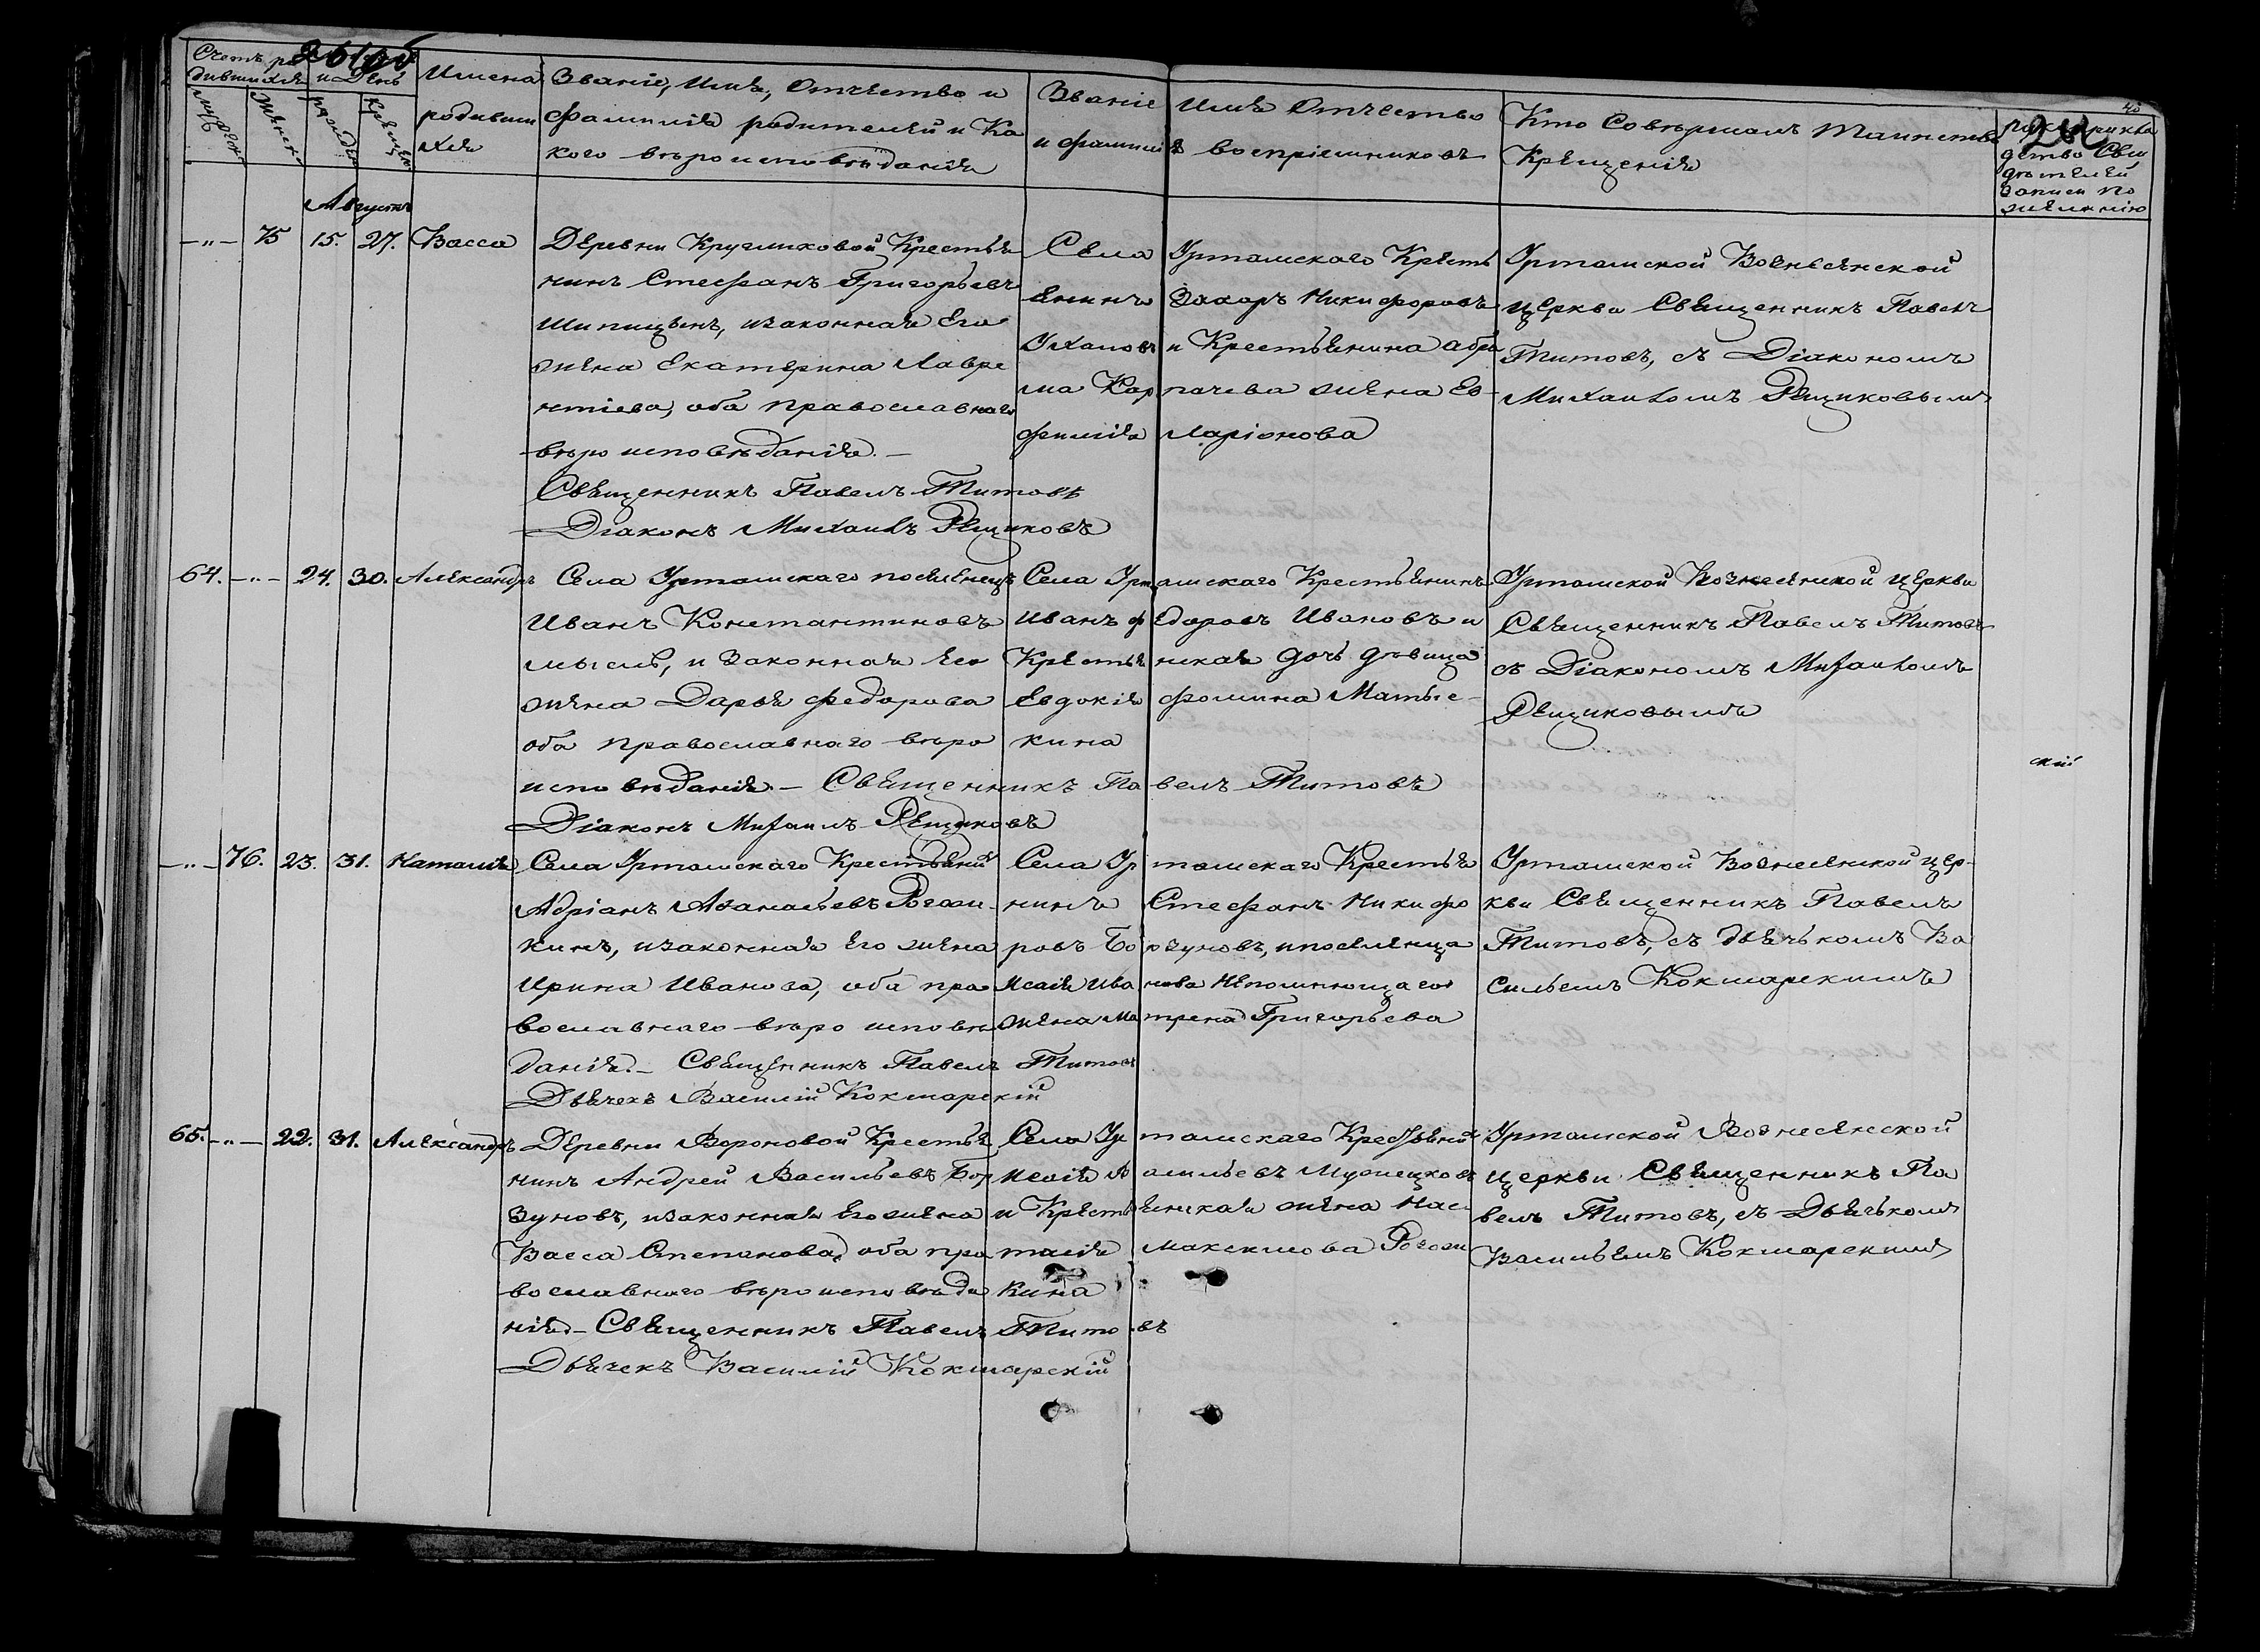 261об
Счетъ ро
дившихся
и День
Имена
родивши
хся
Званіе, Имя, Отчество и
Фамилія родителей и Ка
кого вѣроисповѣданія
Званіе Имя Отчество
и фамилія воспріемниковъ
Кто Совершалъ Таинство
Крещенія
дѣтелей
записи по
желанію
Августъ
—"— 75 15. 27. Васса
Деревни Кругликовой Крестья
нинъ Стефанъ Григорьевъ
Шипицынъ, изаконная Его
жена Екатерина Лавре
нтіева, оба православнаго
вѣроисповѣданія.—
Священникъ Павелъ Титовъ
Діаконъ Михаилъ Рещиковъ
Села Уртамскаго Кресть
янинъ Захаръ Никифоровъ
Ухановъ и Крестьянина абра
ма Карпачева жена Ев-
фимія Ларіонова
Уртамской Вознесенской
церкви Священникъ Павелъ
Титовъ, съ Діакономъ
Михаиломъ Рещиковымъ
64. —"— 24. 30. Александръ
Села Уртамскаго поселенецъ
Иванъ Константиновъ
мысль, и Законная его
жена Дарья федорова
оба православнаго вѣро
исповѣданія.— Священникъ Павелъ Титовъ
Діаконъ Михаилъ Рещиковъ
Села Уртамскаго Крестьянинъ
Иванъ федоровъ Ивановъ и
Крестьянская дочь дѣвица
Евдокія фомина Матье-
кина
Уртамской Вознесенской церкви
Священникъ Павелъ Титовъ
съ Діакономъ Михаиломъ
Рещиковымъ
скій
—"— 76. 23. 31. Наталія
Села Уртамскаго Крестьянинъ
Адріанъ Аѳанасьевъ Рогози-
кинъ, изаконная Его жена
Ирина Иванова, оба пра
вославнаго вѣро исповѣ
данія.— Священникъ Павелъ Титовъ
Дьячекъ Василій Кокшарскій
Села Уртамскаго Крестья
нинъ Стефанъ Никифо
ровъ Борзуновъ, ипоселенца
Исаія Иванова Непомнющаго
жена Матрена Григорьева
Уртамской Вознесенской цер-
кви Священникъ Павелъ
Титовъ, съ дьячькомъ Ва
сильемъ Кокшарскимъ
65. —"— 22. 31. Александръ
Деревни Вороновой Крестья
нинъ Андрей Васильевъ Бор
зуновъ, изаконная Его жена
Васса Степанова, оба пра
вославнаго вѣроисповѣда
нія.— Священникъ Павелъ Титовъ
Дьячекъ Василій Кокшарскій
Села Уртамскаго Крестьянинъ
и Крестьянская жена Нас
тасія Максимова Рогози
кина
Уртамской Вознесенской
церкви Священникъ Па
велъ Титовъ, съ Дьячькомъ
Васильемъ Кокшарскимъ